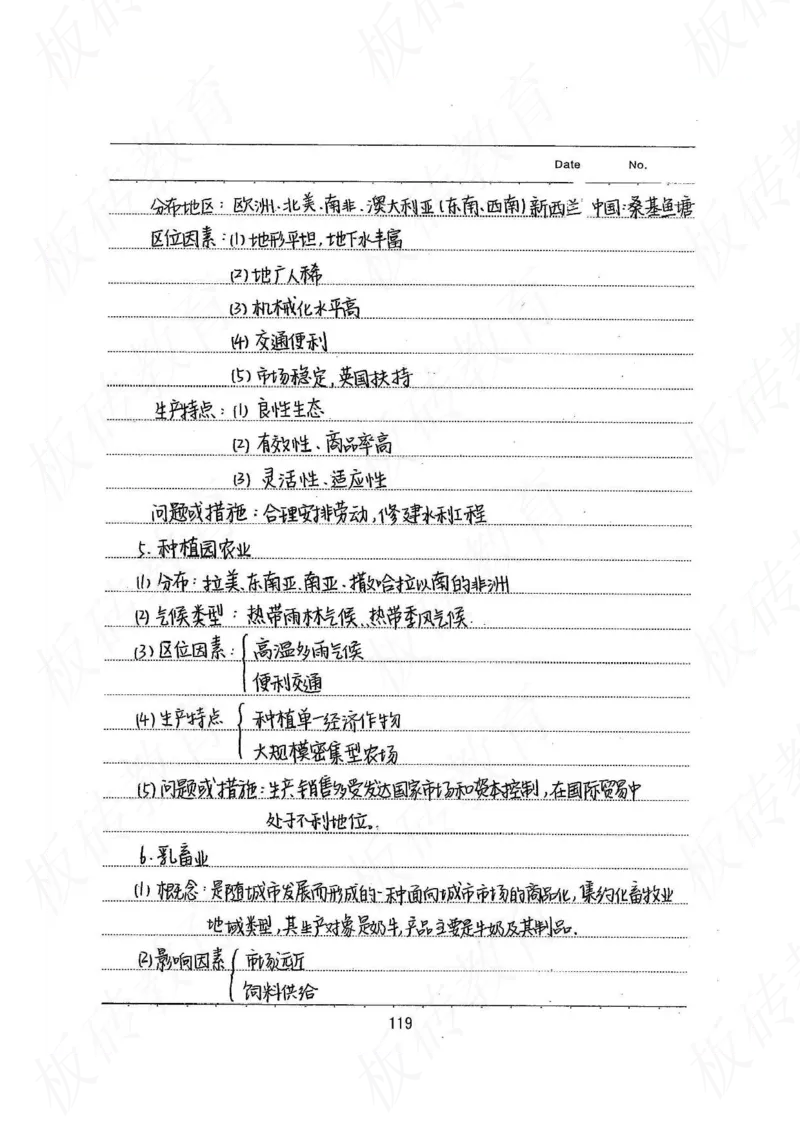 Date No.
分布地区：欧洲、北美、南非、澳大利亚(东南、西南)新西兰 中国：桑基鱼塘
区位因素：(1)地形平坦,地下水丰富
(2)地广人稀
(3)机械化水平高
(4)交通便利
(5)市场稳定,英国扶持
生产特点：(1)良性生态
(2)有效性、商品率高
(3)灵活性、适应性
问题或措施：合理安排劳动,修建水利工程
5.种植园农业
(1)分布：拉美、东南亚、南亚、撒哈拉以南的非洲
(2)气候类型：热带雨林气候、热带季风气候.
(3)区位因素：{高温多雨气候
便利交通
(4)生产特点{种植单一经济作物
大规模密集型农场
(5)问题或措施：生产、销售多受发达国家市场和资本控制,在国际贸易中
处于不利地位。
6.乳畜业
(1)概念：是随城市发展而形成的一种面向城市市场的商品化,集约化畜牧业
地域类型,其生产对象是奶牛,产品主要是牛奶及其制品.
(2)影响因素{市场远近
饲料供给
119
板砖教育